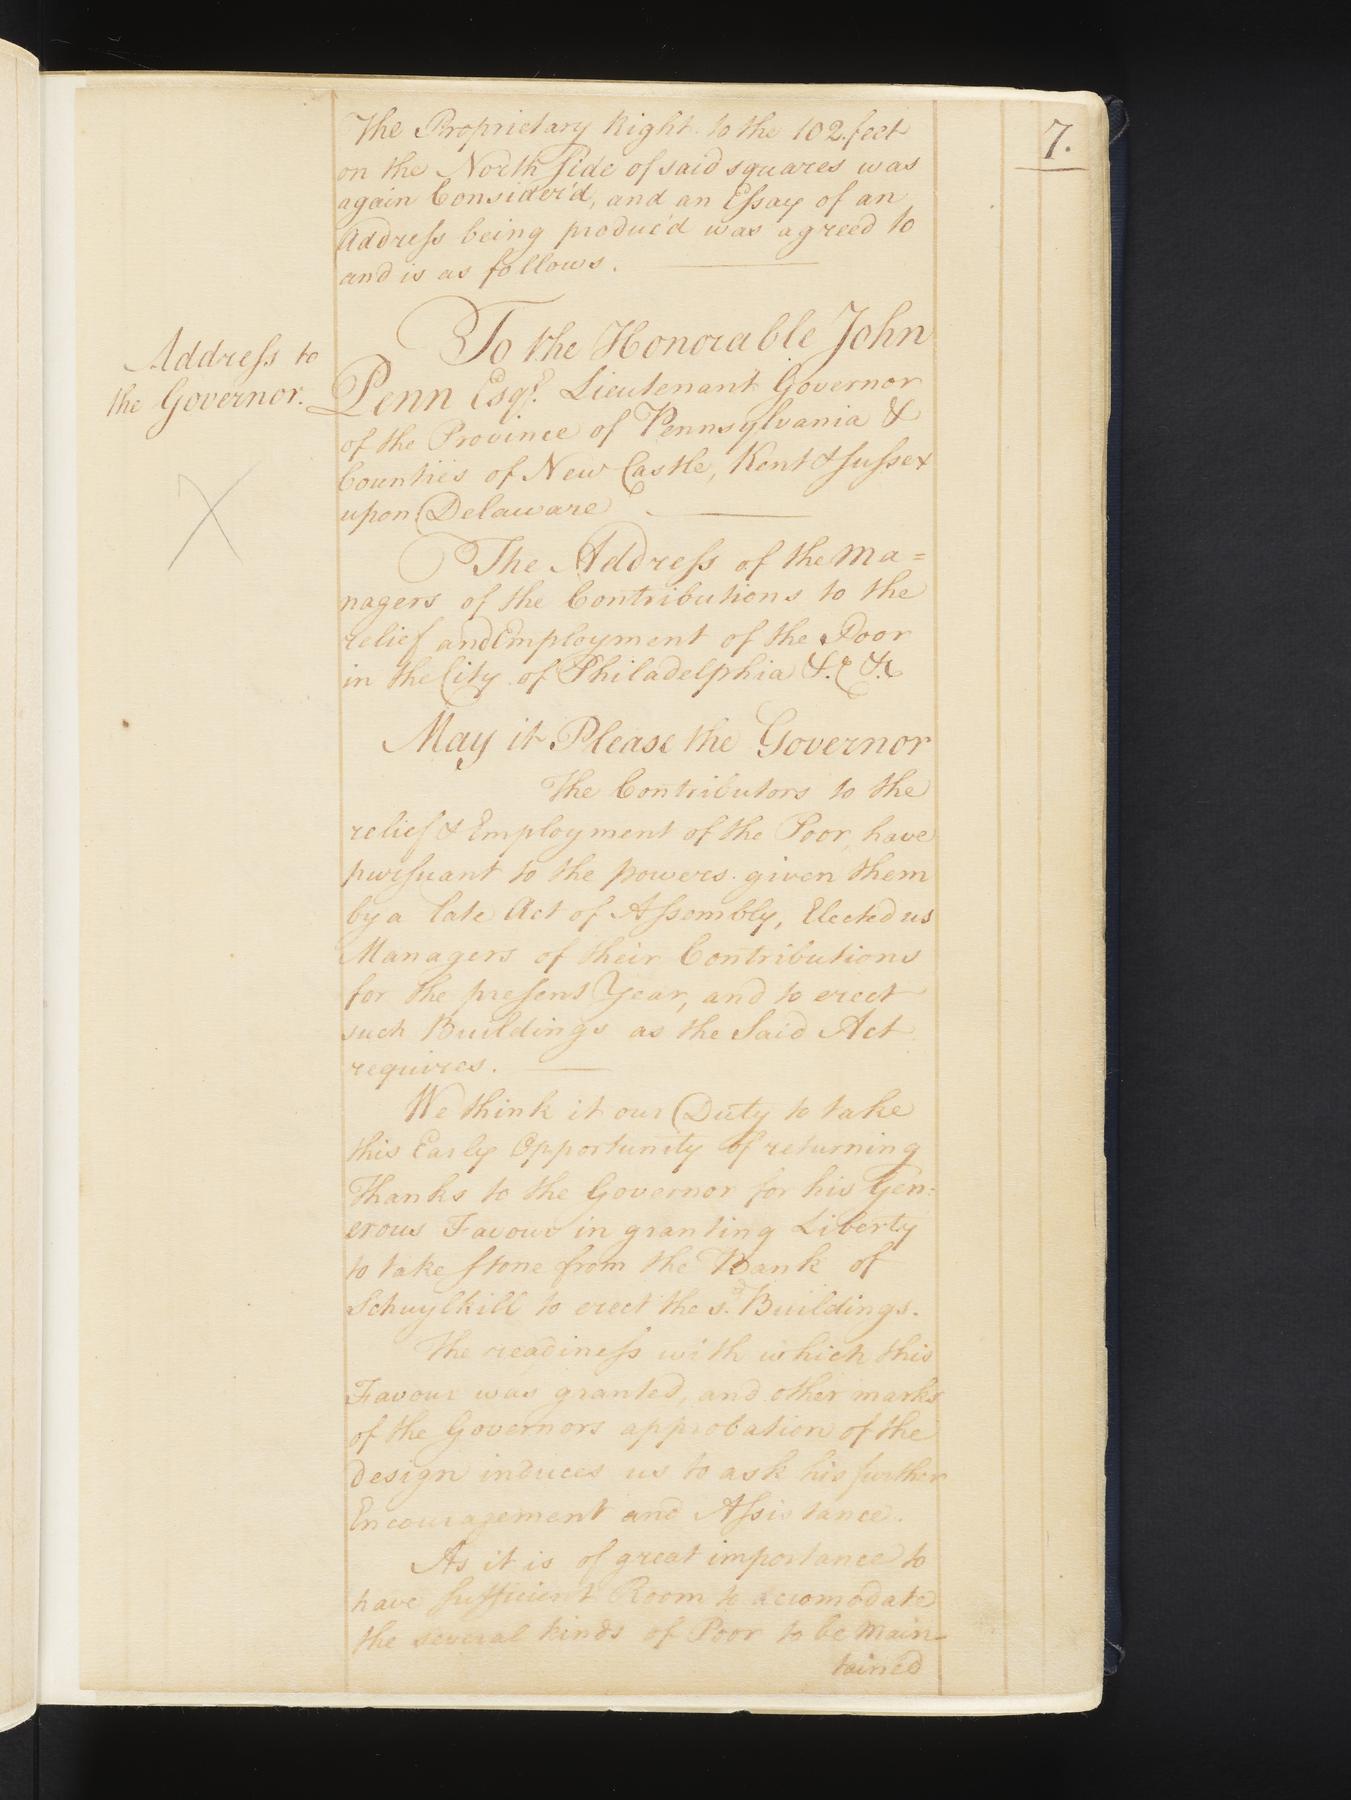 7.
The Proprietary Right to the 102 feet
on the North Side of said squares was
again Consider'd, and an Essay of an
Address being produc'd was agreed to
and is as follows.
Address to
the Governor.
To the Honorable John
Penn Esqr. Lieutenant Governor
of the Province of Pennsylvania &
Counties of New Castle, Kent & Sussex
upon Delaware
The Address of the Ma=
nagers of the Contributions to the
relief and Employment of the Poor
in the City of Philadelphia &c &c
May it Please the Governor
The Contributors to the
relief & Employment of the Poor, have
pursuant to the powers given them
by a late Act of Assembly, Elected us
Managers of their Contributions
for the present Year, and to erect
such Buildings as the Said Act
requires.
We think it our Duty to take
this Early Opportunity of returning
Thanks to the Governor for his Gen=
erous Favour in granting Liberty
to take Stone from the Bank of
Schuylkill to erect the sd. Buildings.
The readiness with which this
Favour was granted, and other marks
of the Governors approbation of the
design induces us to ask his further
Encouragement and Assistance.
As it is of great importance to
have sufficient Room to accomodate
the several kinds of Poor to be Main-
tained